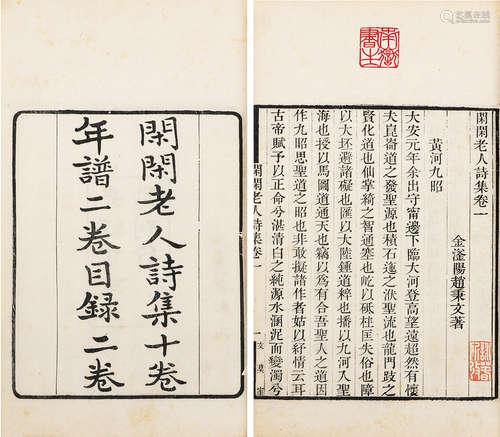 閑閑老人詩集十卷
年譜二卷目録二卷
閑閑老人詩集卷一
金滏陽趙秉文著
黃河九昭
大安元年余出守甯邊下臨大河登高望遠超然有懷
夫崑崙道之發聖源也積石迤之洑聖流也龍門跂之
賢化道也仙掌綺之智通塞也屹以砥柱匡失俗也障
以大坯遴諸礙也匯以大陸鍾道粹也播以九河入聖
海也授以馬圖道通天也竊以爲有合吾聖人之道因
作九昭思聖道之昭也非敢擬諸作者姑以紓情云耳
古帝賦予以正命兮湛清白之純源水涸泥而變濁兮
閑閑老人詩集卷一
一
文莫室